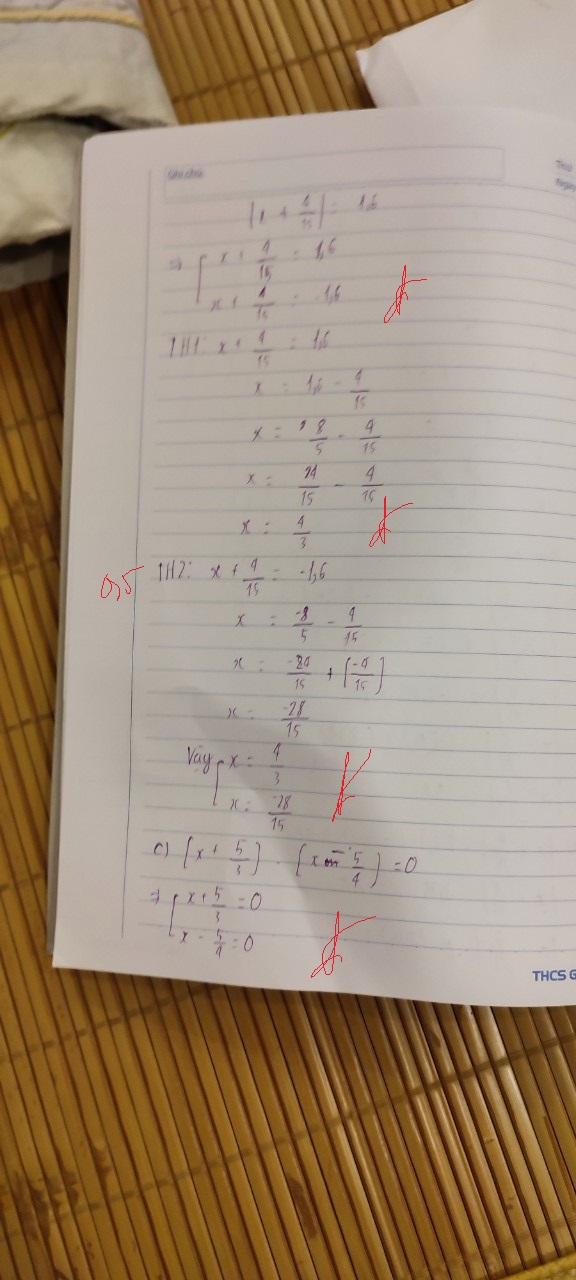 Ghi chú
Thứ
Ngày
|x + 4/15| = 1,6
=> [ x + 4/15 = 1,6
x + 4/15 = -1,6
TH1: x + 4/15 = 1,6
x = 1,6 - 4/15
x = 8/5 - 4/15
x = 24/15 - 4/15
x = 4/3
0,5
TH2: x + 4/15 = -1,6
x = -8/5 - 4/15
x = -24/15 + (-4/15)
x = -28/15
Vậy [ x = 4/3
x = -28/15
c) (x + 5/3) . (x - 5/4) = 0
=> [ x + 5/3 = 0
x - 5/4 = 0
THCS G